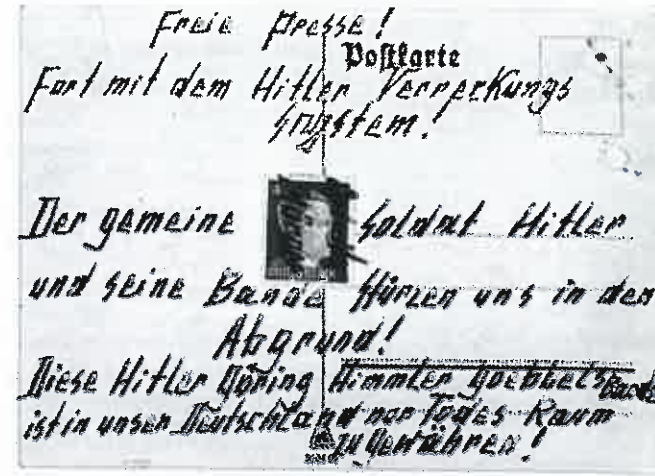 Freie Presse!
Postkarte
Fort mit dem Hitler Verreckungs
system!
Der gemeine Soldat Hitler
und seine Bande stürzen uns in den
Abgrund!
Diese Hitler Göring Himmler Goebbels Bande
ist in unser Deutschland nor Todes Raum
zu gewähren!